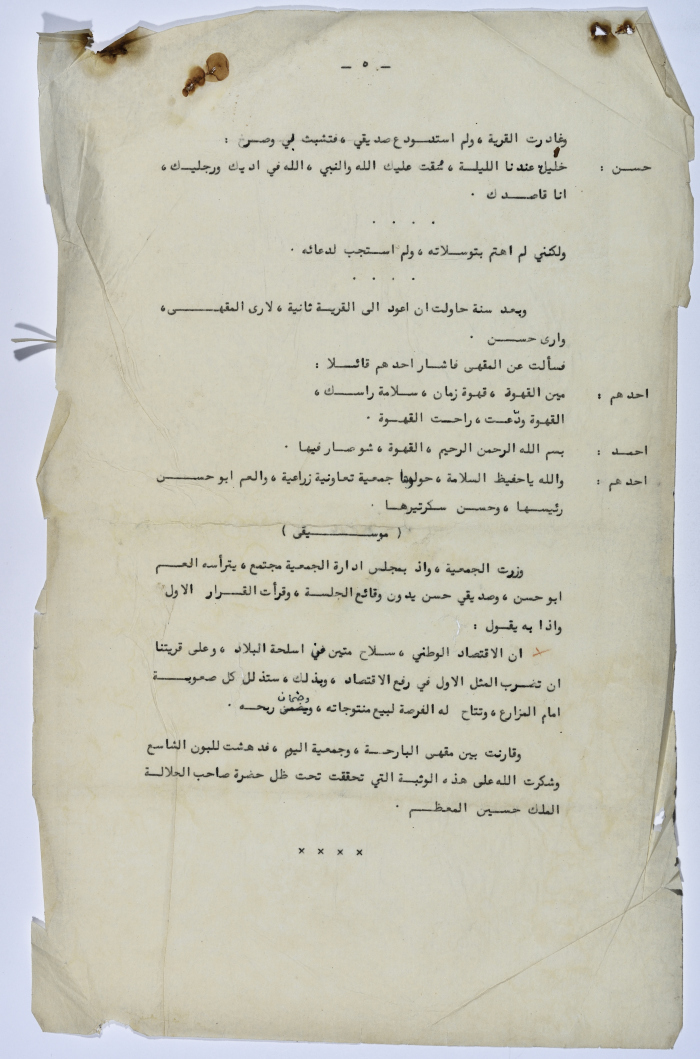 – ٥ –
وغادرت القرية ، ولم استودع صديقي ، فتشبث بي وصرخ :
حسن : خليك عندنا الليلة ، سُقت عليك الله والنبي ، الله في اديك ورجليك ،
انا قاصدك ٠
٠ ٠ ٠ ٠
ولكني لم اهتم بتوسلاته ، ولم استجب لدعائه ٠
٠ ٠ ٠ ٠
وبعد سنة حاولت ان اعود الى القرية ثانية ، لارى المقهى ،
وارى حسن ٠
فسألت عن المقهى فاشار احدهم قائلا :
احدهم : مين القهوة ، قهوة زمان ، سلامة راسك ،
القهوة ودّعت ، راحت القهوة ٠
احمد : بسم الله الرحمن الرحيم ، القهوة ، شو صار فيها ٠
احدهم : والله ياحفيظ السلامة ، حولوها جمعية تعاونية زراعية ، والعم ابو حسن
رئيسها ، وحسن سكرتيرها ٠
( موسيقى )
وزرت الجمعية ، واذ بمجلس ادارة الجمعية مجتمع ، يترأسه العم
ابو حسن ، وصديقي حسن يدون وقائع الجلسة ، وقرأت القرار الاول
واذا به يقول :
ان الاقتصاد الوطني ، سلاح متين في اسلحة البلاد ، وعلى قريتنا
ان تضرب المثل الاول في رفع الاقتصاد ، وبذلك ، ستذلل كل صعوبة
امام المزارع ، وتتاح له الفرصة لبيع منتوجاته ، وضمان ربحه ٠
وقارنت بين مقهى البارحة ، وجمعية اليوم ، فدهشت للبون الشاسع
وشكرت الله على هذه الوثبة التي تحققت تحت ظل حضرة صاحب الجلالة
الملك حسين المعظم ٠
× × × ×